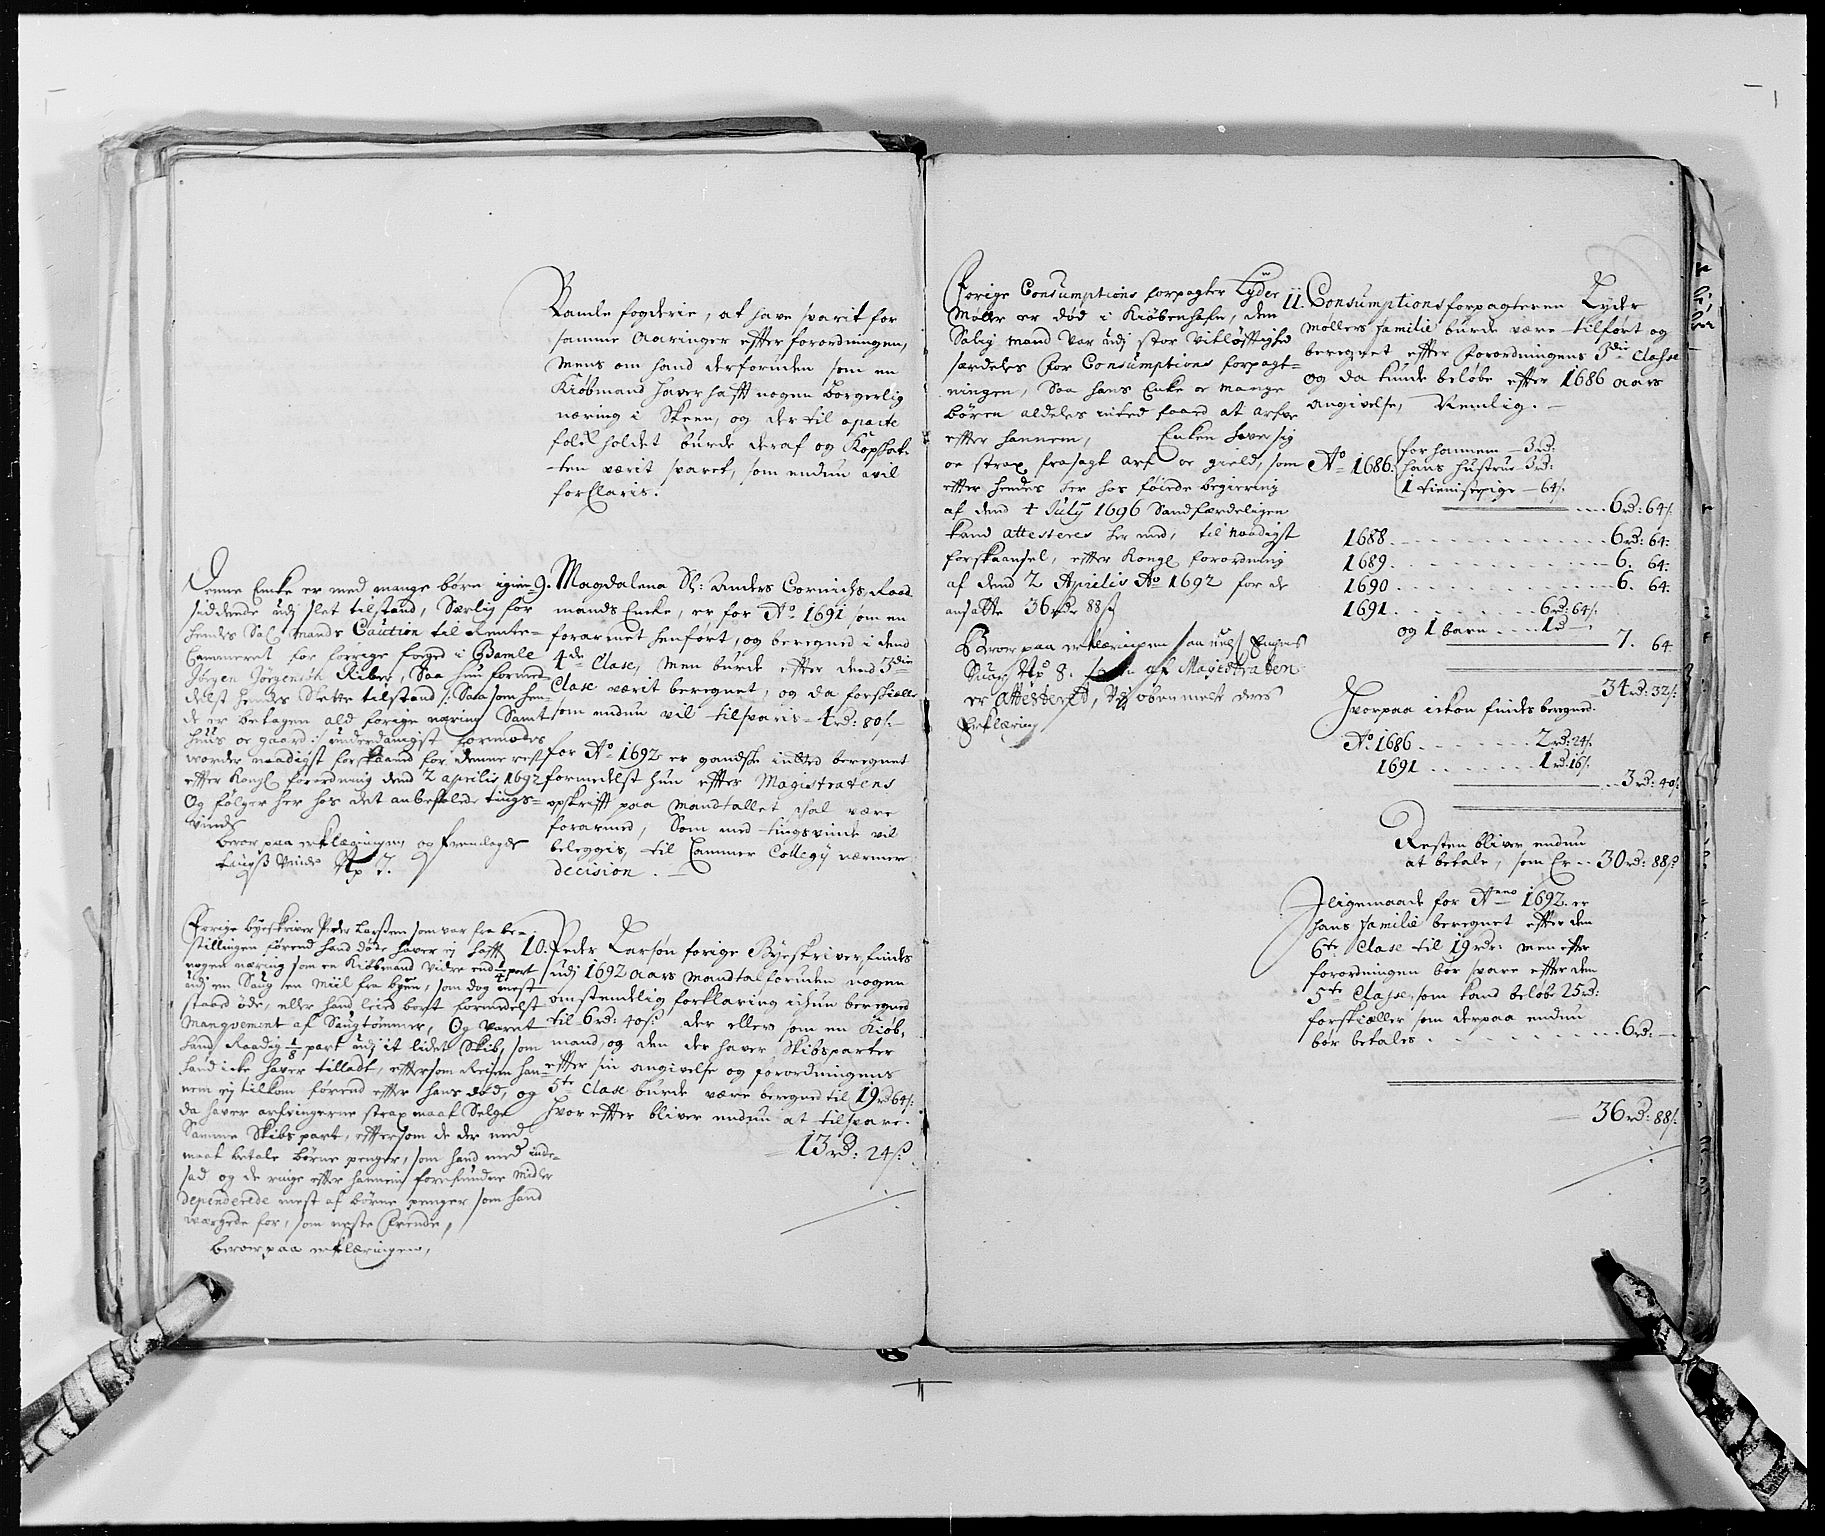 Bamle fogderie, at have svarit for
samme Aaringer effter forordningen,
Mens om hand derforuden som en
Kiøbmand haver hafft nogen borgerlig
næring i Skeen, og der til aparte
folch holdet burde deraf og Kopskat-
ten værit svaret, som endnu vil
forklaris.
Denne Encke er med mange børn igien
siddende udj slet tilstand, Særlig for
hendes Sal. Mands Caution til Rente-
Cammeret for forrige foged i Bamle
Jørgen Jørgensøn Riber, Saa hun formed-
delst hendes Slette tilstand /: Saa som hen-
de er betagen ald forige næring Samt
huus oc gaard :/ underdanigst formodes
worder naadigst forskaaned for denne rest
effter Kongl. forordning dend 2 aprilis 1692
Og følger her hos det anbefalede tings-
vinde
beroer paa erklæringen og fremlagde
tings Vinde No 7.
9. Magdalena Sl: Anders Cornichs, Raad
mands Encke, er for Ao 1691 som en
forarmet henført, og beregned i dend
4de Clase, Men burde effter dend 3die
Clase værit beregnet, og da forskiæller
som endnu vil tilsvaris = 4 rd: 80 s.
for Ao 1692 er gandske inted beregnet
formedelst hun effter Magistratens
opskrifft paa Mandtallet schal være
forarmed, Som med tingsvinde vil
beleggis, til Cammer Collegij nærmer
decision.
Forige byeskriver Peder Larssen som var fra be-
stillingen førend hand døde haver ej hafft
nogen næring som en Kiøbmand videre end 1/4 part
udj en Saug en Miil fra byen, som dog mest
stoed øde, eller hand leied bort formedelst
Manqvement af Saugtømmer, Og været
hand Raadig 1/8 part udj it lidet Skib, som
hand icke haver tilladt, efftersom Reisen han-
nem ej tilkom førend effter hans død, og
da haver arfvingerne strax maat Selge
Samme Skibs part, efftersom de der med
maat betale børne penger, som hand med inde-
sad og de ringe effter hannem forefundne midler
dependerede mest af børne penger som hand
værgede for, som neste Frende,
beroer paa erklæringen,
10. Peder Larsøn forige Byeskriver, findes
udj 1692 aars mandtal foruden nogen
omstendelig forklaring ickun beregned
til 6 rd: 40 s: der ellers som en Kiøb
mand, og den der haver Skibsparter
effter sin angivelse og forordningens
5te Clase burde være beregned til 19 rd 64 s:
hvor effter bliver endnu at tilsvare.
= 13 rd: 24 s:
Forige Consumptions forpagter Lyder
Møller er død i Kiøbenhafn, den
Salig mand var udj stor vitløfftighed
særdeles for Consumptions forpagt-
ningen, Saa hans Enke oc mange
børen aldeles inted faaed at arfve
effter hannem, Enken haver sig
oc strax frasagt arf oc gield, som
effter hendes her hos føiede begiering
af dend 4 July 1696 Sandfærdeligen
kand attesteres her med, til naadigst
forskaansel, effter Kongl forordning
af dend 2 Aprilis Ao 1692 for de
ansatte 36 rdr 88 s
Beroer paa erklæringen saa vel Enkens
No 8. af Magistraten
er Attesteret, ved obenmelte deres
Erklæring
11. Consumptionsforpagteren Lyder
Møllers familie burde være tilført og
beregnet effter forordningens 3die Classe
og da kunde beløbe effter 1686 aars
angivelse, Nemlig.
Ao 1686. for hannem - 3 rd:
hans hustrue 3 rd:
1 tienistepige - 64 s.
.... 6 rd: 64 s.
1688. ............ 6 rd: 64:
1689. ............ 6. 64:
1690 ............ 6. 64
1691. ........ 6 rd: 64 s.
og 1 barn .... 1 rd
7. 64
34 rd: 32 s.
Hvorpaa ickon findes beregned.
Ao. 1686 ....... 2 rd: 24 s.
1691 ....... 1 rd. 16 s.
... 3 rd: 40 s
Resten bliver endnu
at betale, som er .. 30 rd: 88 s
Iligemaade for Anno 1692. er
hans familie beregnet effter den
6te Clase til 19 rdr: men effter
forordningen bør svare effter dem
5te Classe, som kand beløbe 25 rd:
forskiæller som derpaa endnu
bør betales ......... 6 rd: -
36 rd: 88 s.